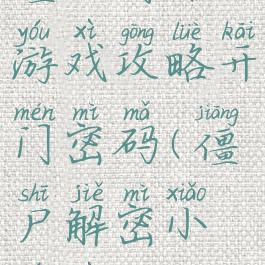 yóu xì gōng lüè kāi
游戏攻略开
mén mì mǎ jiāng
门密码(僵
shī jiě mì xiǎo
尸解密小